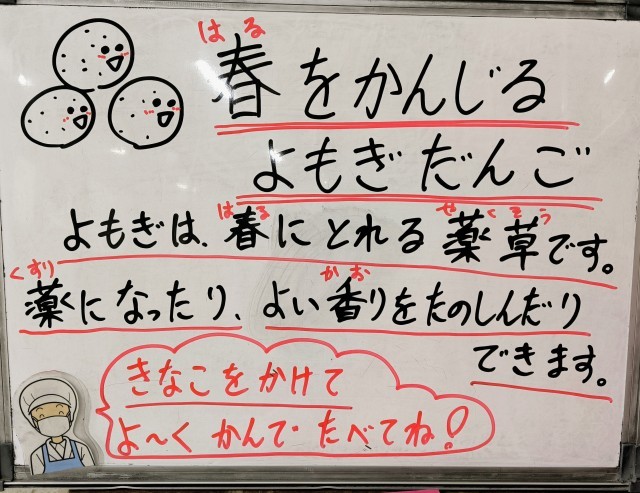 はる
春をかんじる
よもぎだんご
はる やくそう
よもぎは、春にとれる薬草です。
くすり かお
薬になったり、よい香りをたのしんだり
できます。
きなこをかけて
よ～く かんで たべてね!